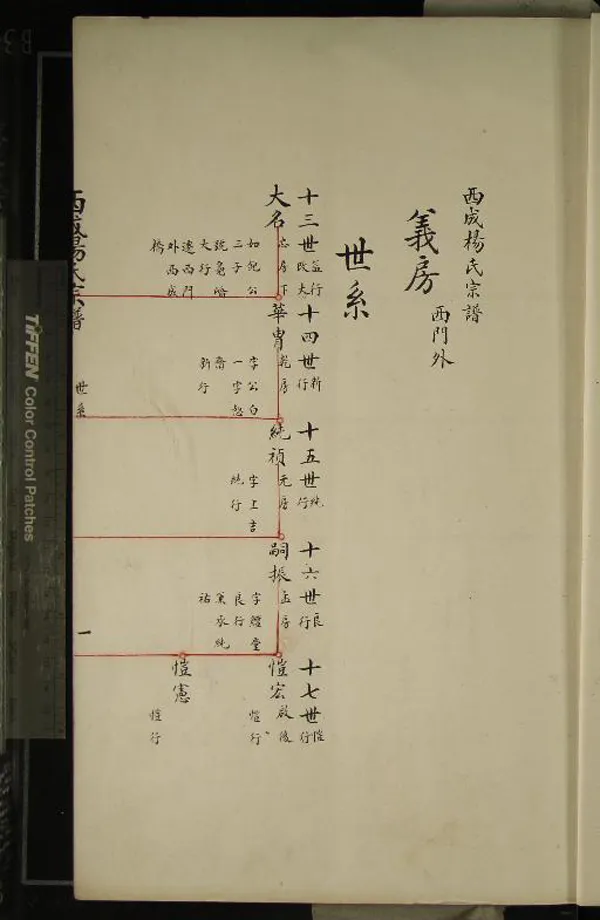 西成楊氏宗譜
義房
西門外
世系
十三世
益行
改大
大名
忠房下
如松公
三子
號龜峪
大行
遷西門
外西成
橋
十四世
新
行
華胄
乾房
字公白
一字
齋
新行
十五世
純
行
純禎
元房
字上吉
純行
十六世
良
行
嗣振
孟房
字體堂
良行
兼承純
祐
十七世
愷
行
愷宏
啟後
愷行
愷憲
愷行
西成楊氏宗譜
世系
一
TIFFEN Color Control Patches